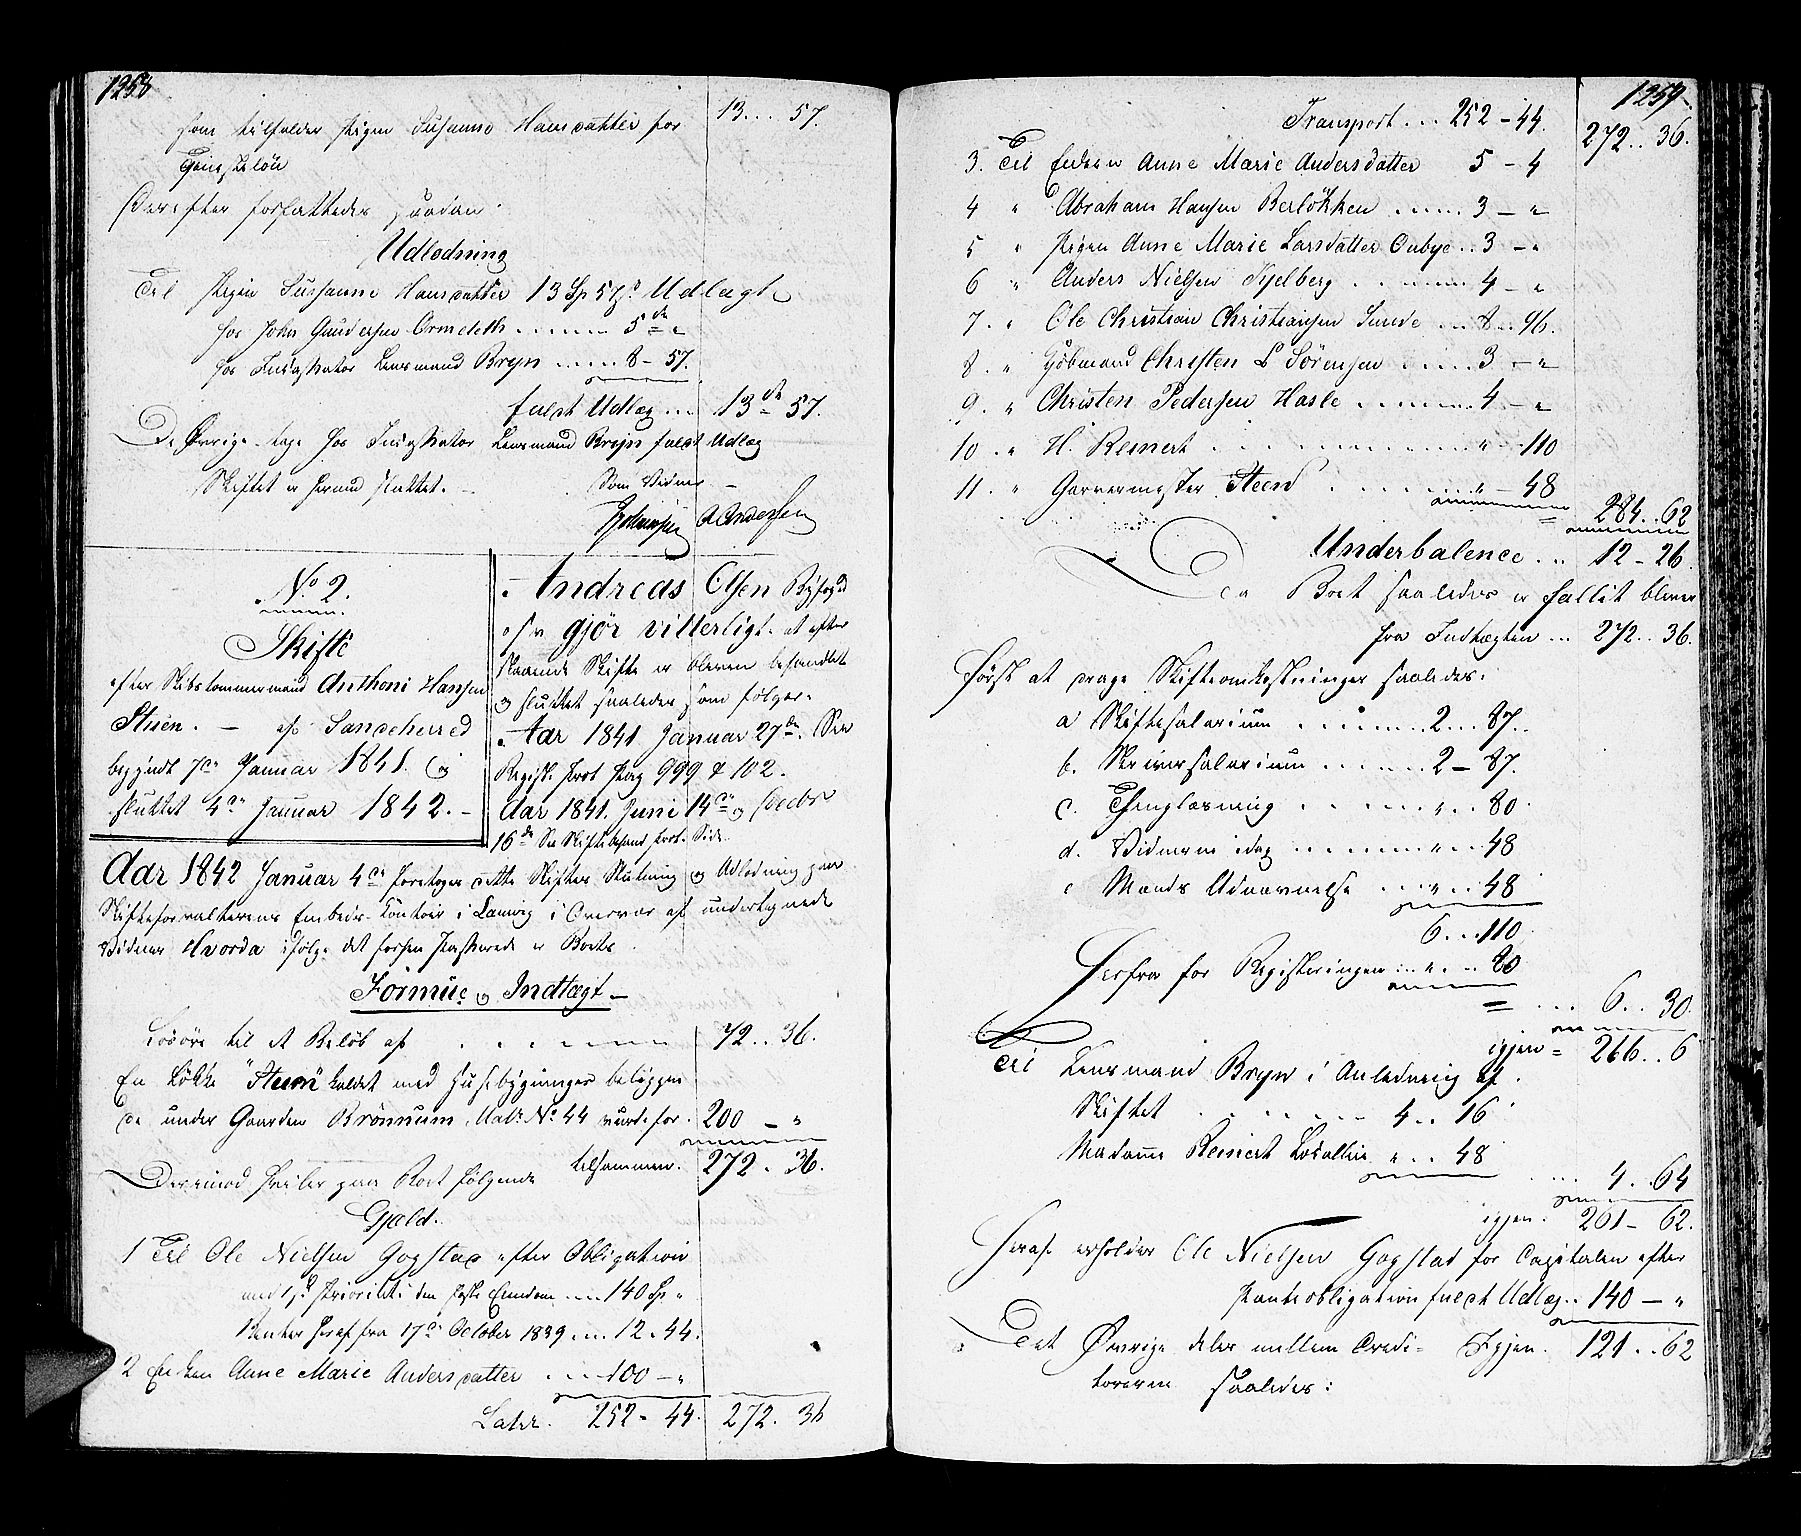 1258
som tilfalder Pigen Susanne Hansdatter for 13...57.
Tjenesteløn
Derefter forfattedes saadan
Udlodning
Til Pigen Susanne Hansdatter 13 Sp 57 s Udlagt
hos John Gundersen Ormeleth ...... 5 d "
hos Incassator Lensmand Bryn ..... 8 - 57.
fuldt Udlæg ... 13 d 57.
De Øvrige tage hos Incassator Lensmand Bryn fuldt Udlæg
Skiftet er hermed sluttet. - Som Vidner -
Johansen A Andersen
No 2.
Skifte
efter Skibstømmermand Anthoni Hansen
Steen. - af Sandeherred
begyndt 7de Januar 1841. og
sluttet 4de Januar 1842. -
Andreas Olsen Byfoged
gjør vitterligt at efter
staaende Skifte er bleven behandlet
og sluttet saaledes som følger.
Aar 1841 Januar 27de. See
Regist. Prot Pag 999 & 102.
Aar 1841. Juni 14de og Decbr
16de See Skifte Behand. Prot. Side.
Aar 1842 Januar 4de foretoges dette Skiftes Slutning og Udlodning paa
Skifteforvalterens Embeds-Contoir i Laurvig i Overvær af undertegnede
Vidner Hvorda ifølge det forhen Passerede er Boets
Formue og Indtægt -
Løsøre til et Beløb af ....... 72..36.
En Løkke "Steen" kaldet med Huusbygninger beliggen
de under Gaarden Brønnum, Matr. No 44 vurd. for. 200 - "
tilsammen. 272. 36.
Derimod hviler paa Boet følgende
Gjæld.
1 Til Ole Nielsen Gogstad efter Obligation
med 1ste Prioritet i den faste Eiendom .... 140 Sp "
Renter heraf fra 17de October 1839 .... 12. 44.
2 Enken Anne Marie Andersdatter .... 100 - "
Latr. 252 - 44. 272. 36
1259
Transport ... 252 - 44. 272.. 36.
3. Til Enken Anne Marie Andersdatter 5 - 4
4 " Abraham Hansen Berløkken ...... 3 - "
5 " Pigen Anne Marie Larsdatter Onbye .. 3 - "
6 " Anders Nielsen Kjelberg ....... 4 - "
7. " Ole Christian Christiansen Sunde ... 8 .. 96.
8. " Gjøbmand Christen L Sørensen ..... 3 - "
9. " Christen Pedersen Hasle ....... 4 - "
10. " H. Reinert ............ " .. 110
11. " Garvermester Steen ........ " 48
284..62
Underbalence .. 12 - 26.
Da Boet saaledes er fallit bliver
fra Indtægten ... 272..36.
Først at drage Skifteomkostninger saaledes:
a Skiftesalarium ........ 2 .. 87.
b. Skriversalarium ...... 2 - 87.
c. Thinglæsning ....... " .. 80.
d. Vidnerne idag ....... " .. 48
e Mænds Udnævnelse .... " .. 48
6...110.
Herfra for Registeringen ... " ... 80
= ... 6..30.
igjen = 266..6
Til Lensmand Bryn i Anledning af
Skiftet ........ 4..16
Madame Reinert Localleie " .. 48
.... 4..64
igjen. 261 - 62.
Heraf erholder Ole Nielsen Gogstad for Capitalen efter
Panteobligation fuldt Udlæg.. 140 - "
Det Øvrige deles mellem Credi= Igjen. 121..62
torerne saaledes: